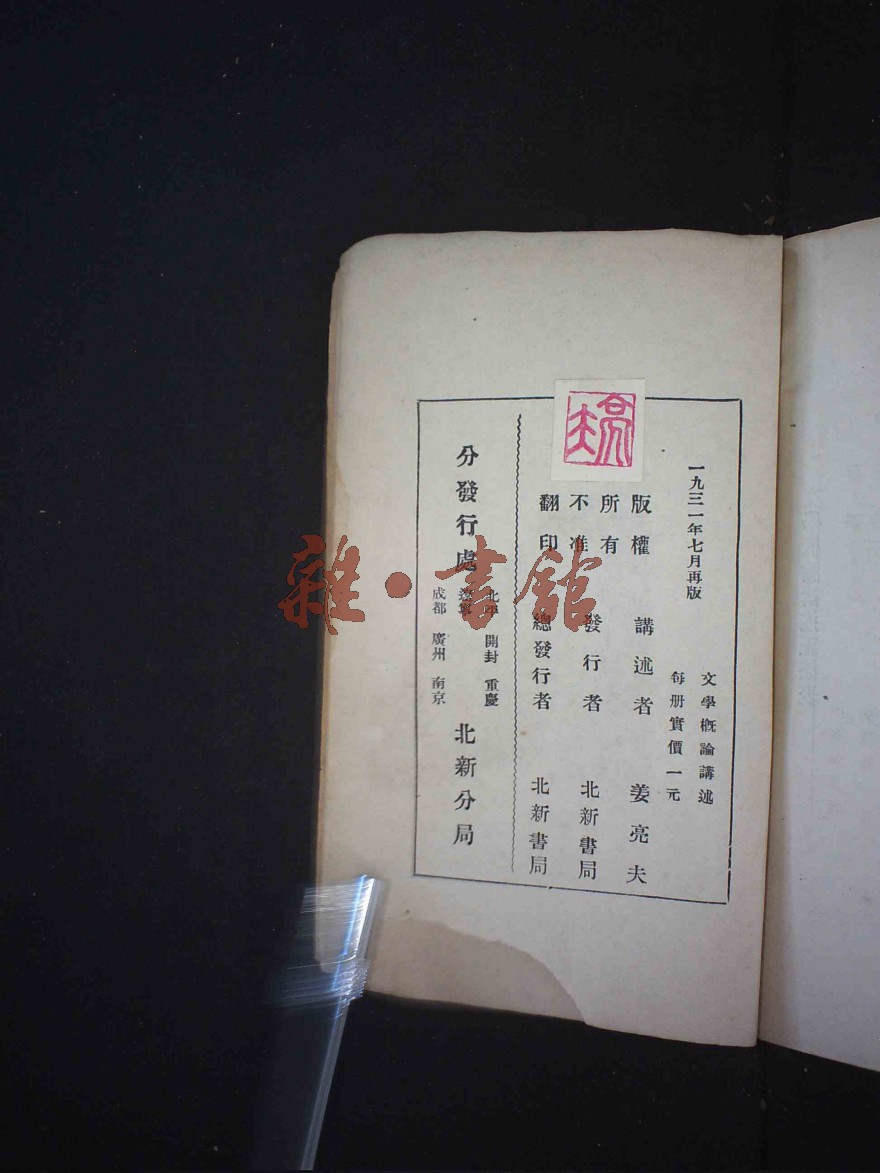 一九三一年七月再版
文學概論講述
每册實價一元
版權
所有
不准
翻印
講述者 姜亮夫
發行者 北新書局
總發行者 北新書局
亮夫
分發行處
北平 開封 重慶
遼寧
成都 廣州 南京
北新分局
雜·書館